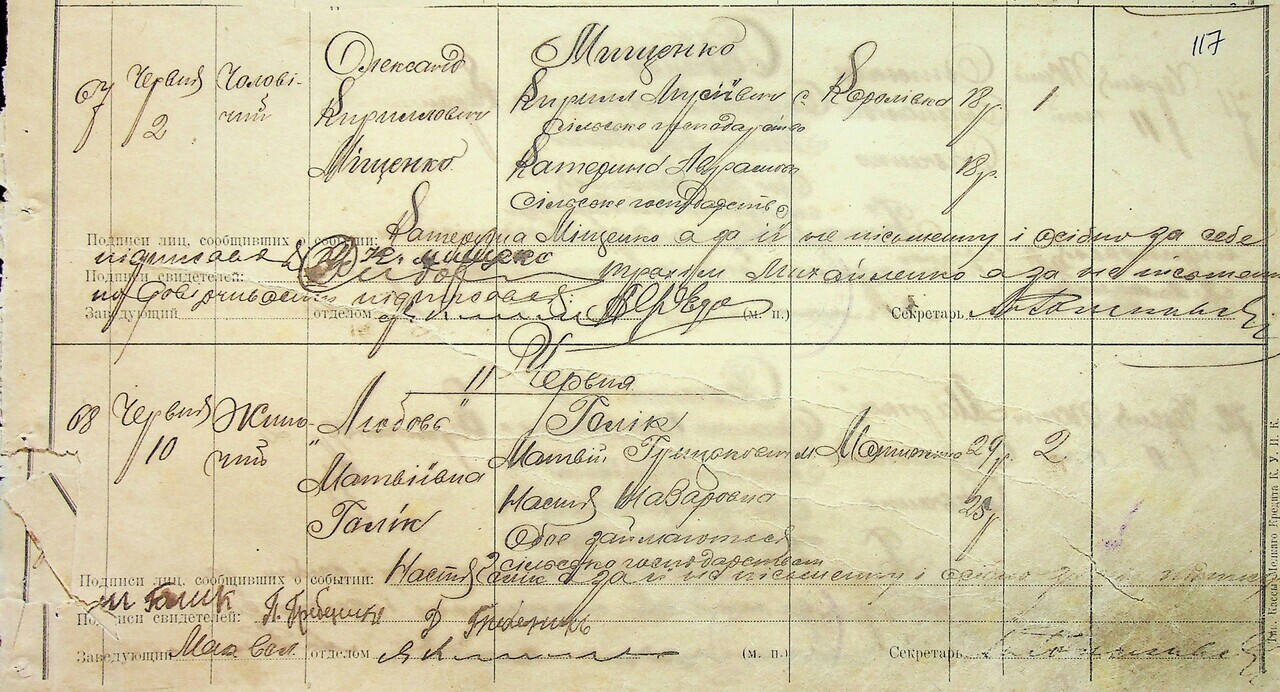 117
67 Червня 2 Чоловічий Олександ Кириллович Міщенко
Мищенко
Кирилл Мусіївич с. Королівка 18 р. 1
Сільське господарство
Катерина Аврамова 18 р.
Сільське господарство
Подписи лиц, сообщивших о событии: Катерина Міщенко а за її не письменну і особно за себе
підписався К. Мищенко
Подписи свидетелей: Трахім Михайленко а за не письмен
по довірчивости підписався
Заведующий отделом (м. п.) Секретарь
11 Червня
68 Червня 10 Жиночий Любовь Матвіївна Голік
Голік
Матвій Грицькович м. 29 р. 2.
Настя Назаровна 25 р
Обоє займаються
сільско господарством
Подписи лиц, сообщивших о событии: Настя Голик а за її не письменну і особно за
М Голик
Подписи свидетелей: П. Гребеник
Заведующий отделом (м. п.) Секретарь